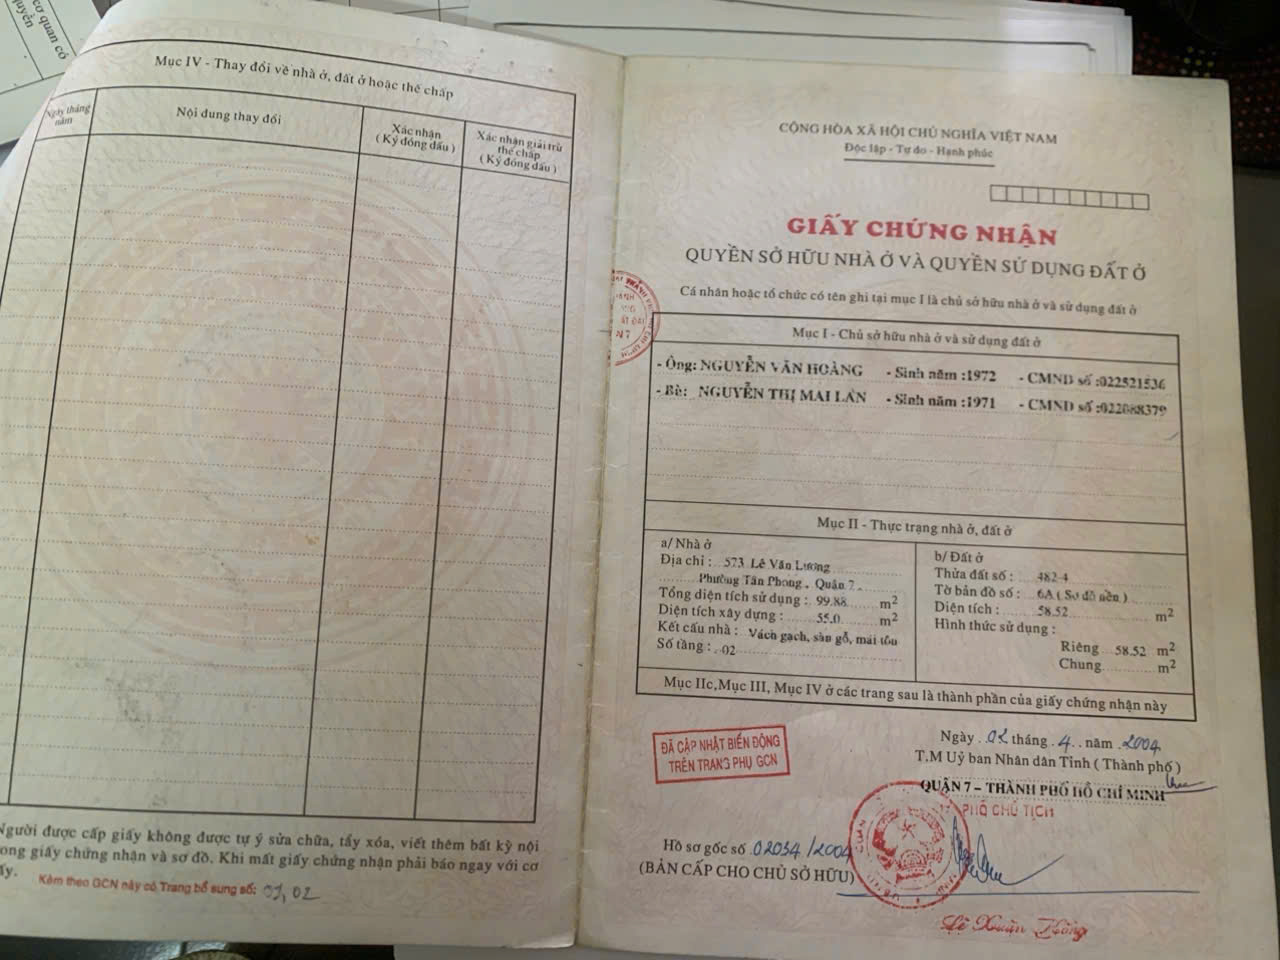 cơ quan có
quyền
Mục IV - Thay đổi về nhà ở, đất ở hoặc thế chấp
Ngày tháng năm
Nội dung thay đổi
Xác nhận
( Ký đóng dấu )
Xác nhận giải trừ
thế chấp
( Ký đóng dấu )
Người được cấp giấy không được tự ý sửa chữa, tẩy xóa, viết thêm bất kỳ nội
trong giấy chứng nhận và sơ đồ. Khi mất giấy chứng nhận phải báo ngay với cơ
Kèm theo GCN này có Trang bổ sung số: 01, 02
CỘNG HÒA XÃ HỘI CHỦ NGHĨA VIỆT NAM
Độc lập - Tự do - Hạnh phúc
GIẤY CHỨNG NHẬN
QUYỀN SỞ HỮU NHÀ Ở VÀ QUYỀN SỬ DỤNG ĐẤT Ở
Cá nhân hoặc tổ chức có tên ghi tại mục I là chủ sở hữu nhà ở và sử dụng đất ở
Mục I - Chủ sở hữu nhà ở và sử dụng đất ở
- Ông: NGUYỄN VĂN HOÀNG - Sinh năm :1972 - CMND số :022521536
- Bà: NGUYỄN THỊ MAI LAN - Sinh năm :1971 - CMND số :022088379
Mục II - Thực trạng nhà ở, đất ở
a/ Nhà ở
Địa chỉ : 573 Lê Văn Lương
Phường Tân Phong . Quận 7
Tổng diện tích sử dụng : 99.88 m2
Diện tích xây dựng : 55.0 m2
Kết cấu nhà : Vách gạch, sàn gỗ, mái tôn
Số tầng : 02
b/ Đất ở
Thửa đất số : 482-4
Tờ bản đồ số : 6A ( Sơ đồ nền )
Diện tích : 58.52 m2
Hình thức sử dụng :
Riêng 58.52 m2
Chung m2
Mục IIc,Mục III, Mục IV ở các trang sau là thành phần của giấy chứng nhận này
ĐÃ CẬP NHẬT BIẾN ĐỘNG
TRÊN TRANG PHỤ GCN
Ngày 02 tháng 4 năm 2004
T.M Uỷ ban Nhân dân Tỉnh ( Thành phố )
QUẬN 7 – THÀNH PHỐ HỒ CHÍ MINH
PHÓ CHỦ TỊCH
Hồ sơ gốc số 02034 /2004
(BẢN CẤP CHO CHỦ SỞ HỮU)
Lê Xuân